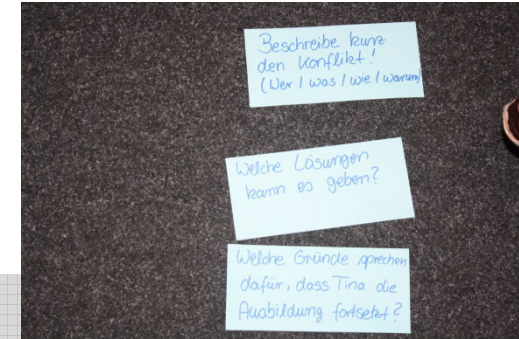 Beschreibe kurz
den Konflikt!
(Wer / was / wie / warum)
Welche Lösungen
kann es geben?
Welche Gründe sprechen
dafür, dass Tina die
Ausbildung fortsetzt?